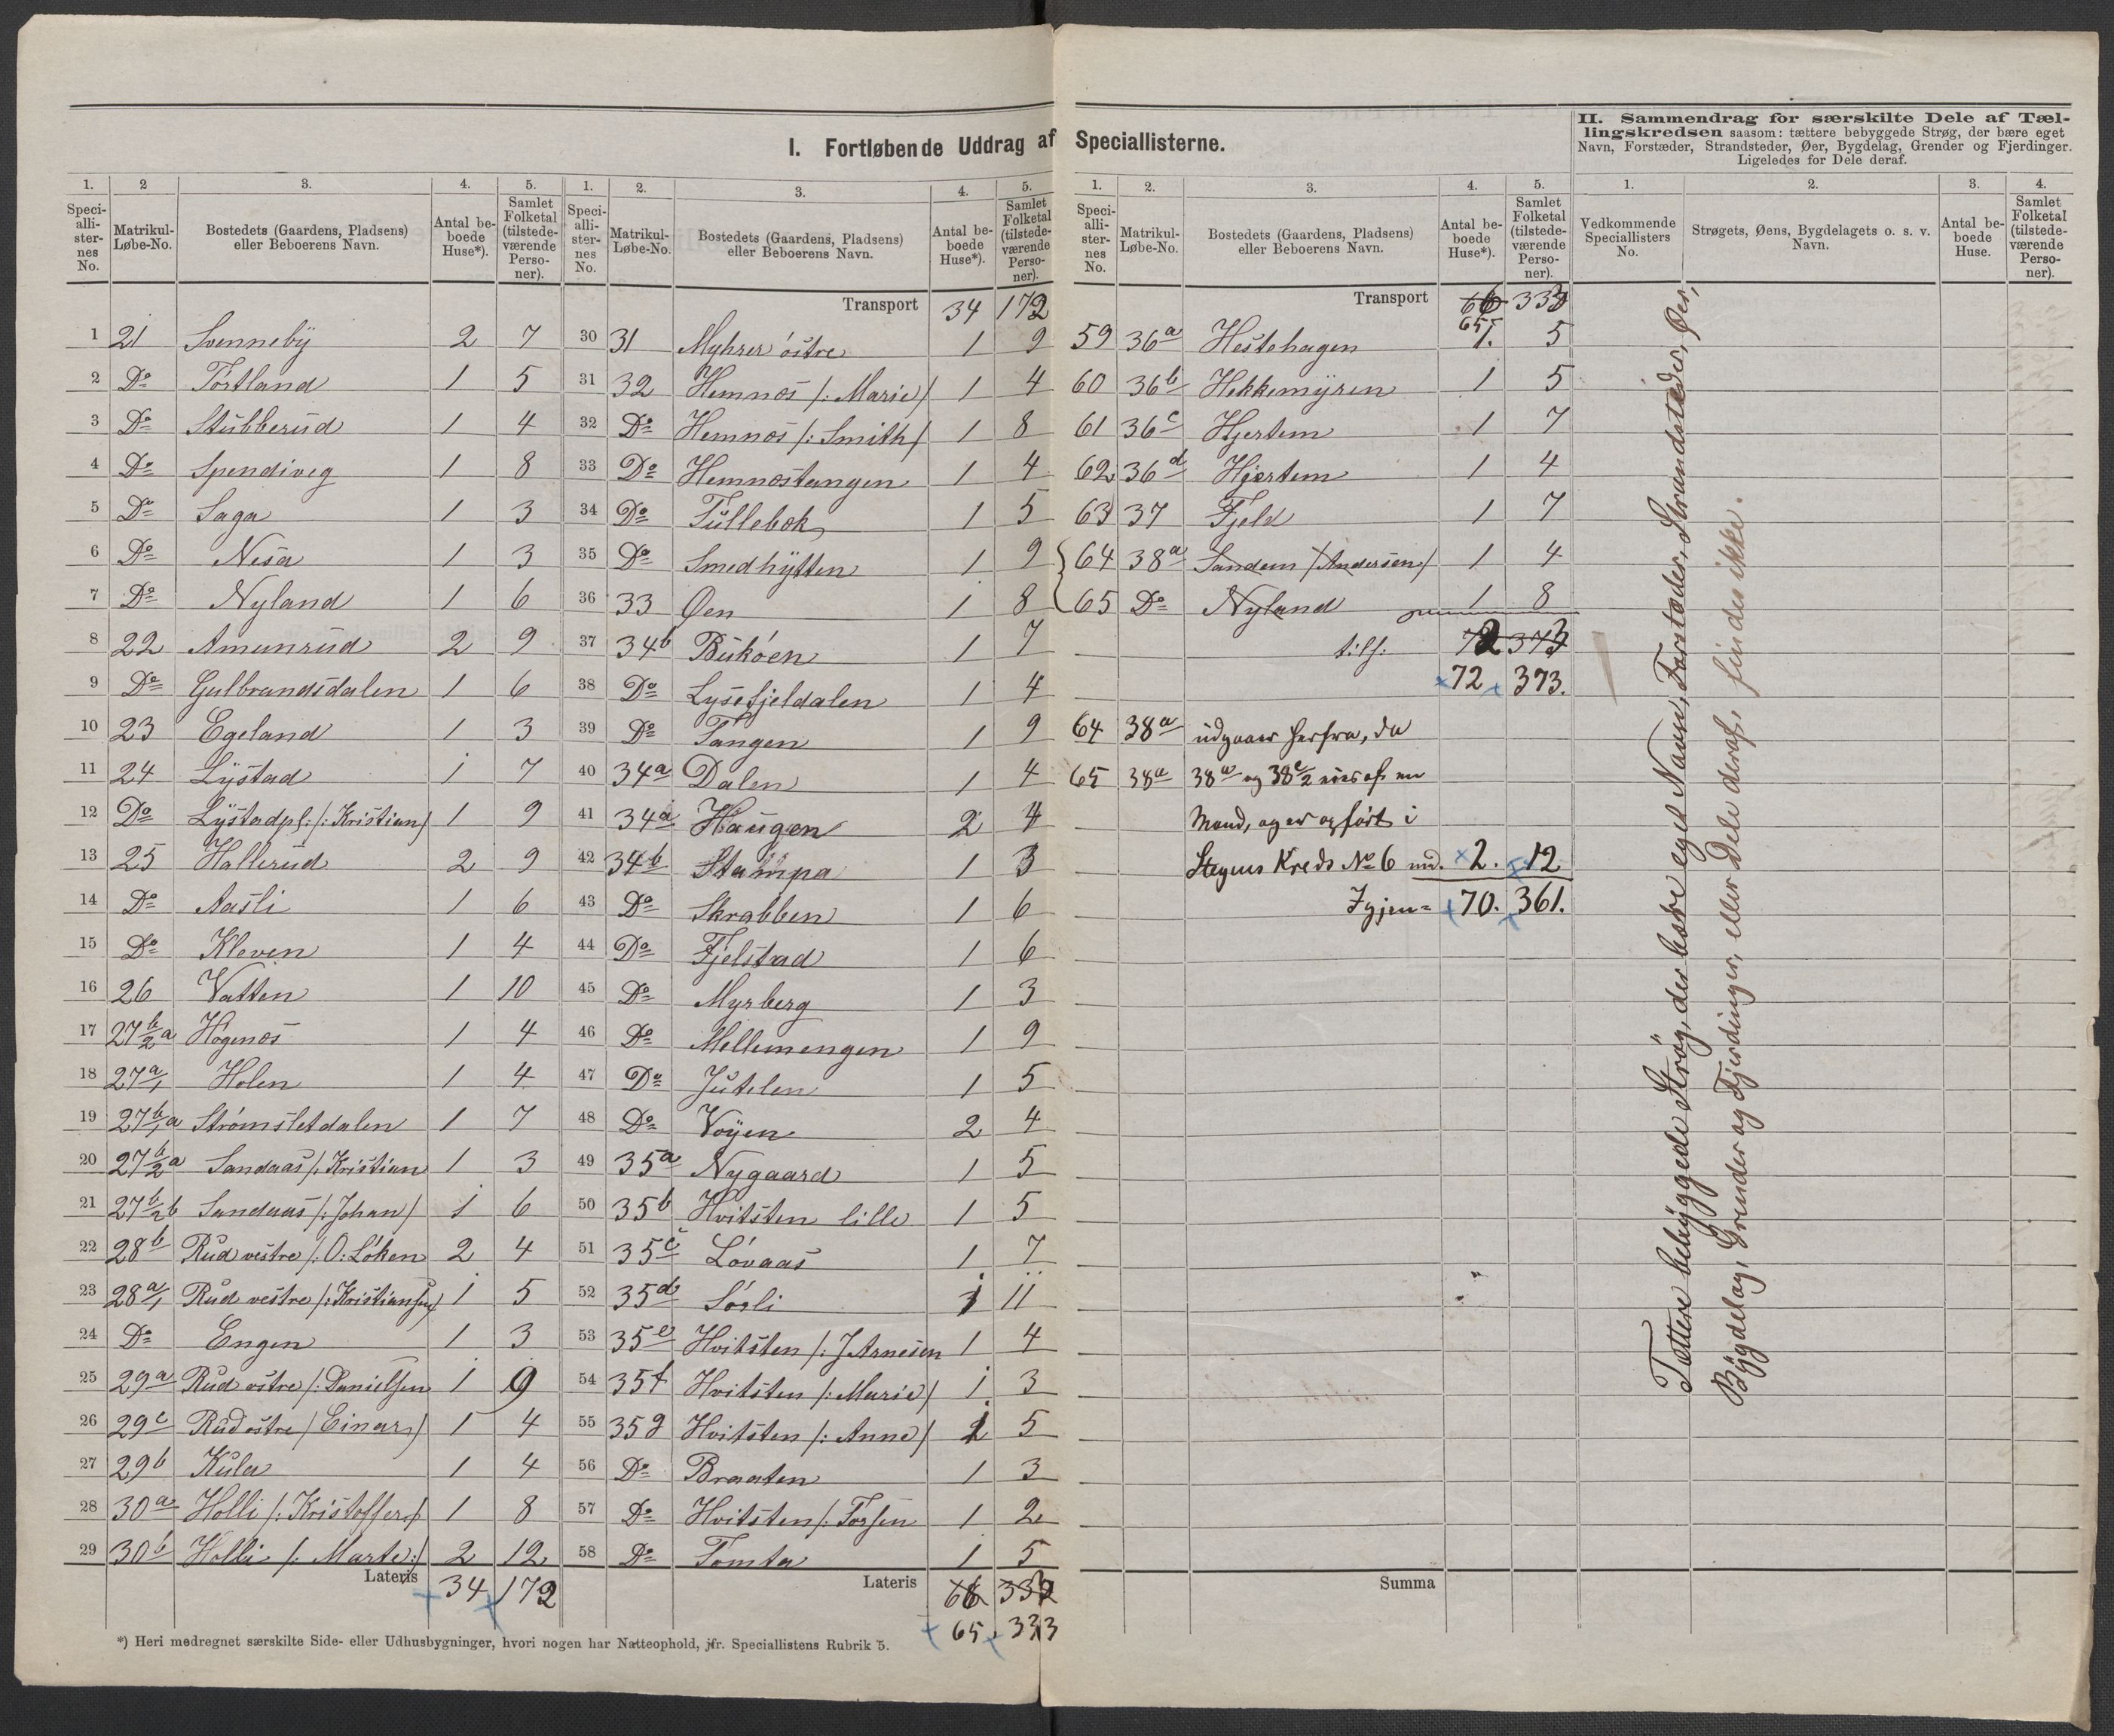 I. Fortløbende Uddrag af Speciallisterne.
II. Sammendrag for særskilte Dele af Tæl-
lingskredsen saasom: tættere bebyggede Strøg, der bære eget
Navn, Forstæder, Strandsteder, Øer, Bygdelag, Grender og Fjerdinger.
Ligeledes for Dele deraf.
1. 2 3. 4. 5.
Speci-alli-ster-nes No. Matrikul-Løbe-No. Bostedets (Gaardens, Pladsens) eller Beboerens Navn. Antal be-boede Huse*). Samlet Folketal (tilstede-værende Perso-ner).
1 21 Svenneby 2 7
2 Do Tortland 1 5
3 Do Stubberud 1 4
4 Do Spendiveg 1 8
5 Do Saga 1 3
6 Do Nesa 1 3
7 Do Nyland 1 6
8 22 Amunrud 2 9
9 Do Gulbrandsdalen 1 6
10 23 Egeland 1 3
11 24 Lystad 1 7
12 Do Lystadpl: /: Kristian/ 1 9
13 25 Hallerud 2 9
14 Do Aasli 1 6
15 Do Kleven 1 4
16 26 Vatten 1 10
17 27 b/2 a Høgenæs 1 4
18 27 a/1 Holen 1 4
19 27 b/1 a Strømsletdalen 1 7
20 27 b/2 a Sandaas /: Kristian 1 3
21 27 b/2 b Sandaas /: Johan/ 1 6
22 28b Rud vestre /: O: Løken 2 4
23 28 a/1 Rud vestre /: Kristiansen/ 1 5
24 Do Engen 1 3
25 29a Rud østre /: Danielsen 1 9
26 29c Rud østre / Einar/ 1 4
27 29b Kula 1 4
28 30a Holli /: Kristoffer/ 1 8
29 30b Holli /: Marte:/ 2 12
Lateris 34 172
*) Heri medregnet særskilte Side- eller Udhusbygninger, hvori nogen har Natteophold, jfr. Speciallistens Rubrik 5.
1. 2. 3. 4. 5.
Speci-alli-ster-nes No. Matrikul-Løbe-No. Bostedets (Gaardens, Pladsens) eller Beboerens Navn. Antal be-boede Huse*). Samlet Folketal (tilstede-værende Perso-ner).
Transport 34 172
30 31 Myhrer østre 1 9
31 32 Hemnæs /: Marie/ 1 4
32 Do Hemnæs /: Smith/ 1 8
33 Do Hemnæstangen 1 4
34 Do Tullebok 1 5
35 Do Smedhytten 1 9
36 33 Øen 1 8
37 34b Bukøen 1 7
38 Do Lysefjeldalen 1 4
39 Do Tangen 1 9
40 34a Dalen 1 4
41 34a Haugen 2 4
42 34b Stampa 1 3
43 Do Skrabben 1 6
44 Do Fjelstad 1 6
45 Do Myrberg 1 3
46 Do Mellemengen 1 9
47 Do Jutelen 1 5
48 Do Voyen 2 4
49 35a Nygaard 1 5
50 35b Hvitsten lille 1 5
51 35c Løvaas 1 7
52 35d Sørli 1 11
53 35e Hvitsten /: J Arnesen 1 4
54 35f Hvitsten /: Marie/ 1 3
55 35g Hvitsten /: Anne/ 1 5
56 Do Braaten 1 3
57 Do Hvitsten /: Torsen 1 2
58 Do Tomta 1 5
Lateris 66 333
65 333
1. 2. 3. 4. 5.
Speci-alli-ster-nes No. Matrikul-Løbe-No. Bostedets (Gaardens, Pladsens) eller Beboerens Navn. Antal be-boede Huse*). Samlet Folketal (tilstede-værende Perso-ner).
Transport 66 333
65
59 36a Hestehagen 1. 5
60 36b Hekkemyren 1 5
61 36c Hjertem 1 7
62 36d Hjertem 1 4
63 37 Fjeld 1 7
64 38a Sandem / Andersen/ 1 4
65 Do Nyland 1 8
72 373
72 373.
64 38a udgaaer herfra, da
65 38a 38a og 38 c/2 eies af en
Mand, og er opført i
Stegens Kreds No 6 med. 2. 12
Igjen = 70. 361.
Summa
1. 2. 3. 4.
Vedkommende Speciallisters No. Strøgets, Øens, Bygdelagets o. s. v. Navn. Antal be-boede Huse. Samlet Folketal (tilstede-værende Perso-ner).
Tættere bebyggede Strøg, der bære eget Navn, Forstæder, Strandsteder, Øer,
Bygdelag, Grender og Fjerdinger, eller Dele deraf, findes ikke.